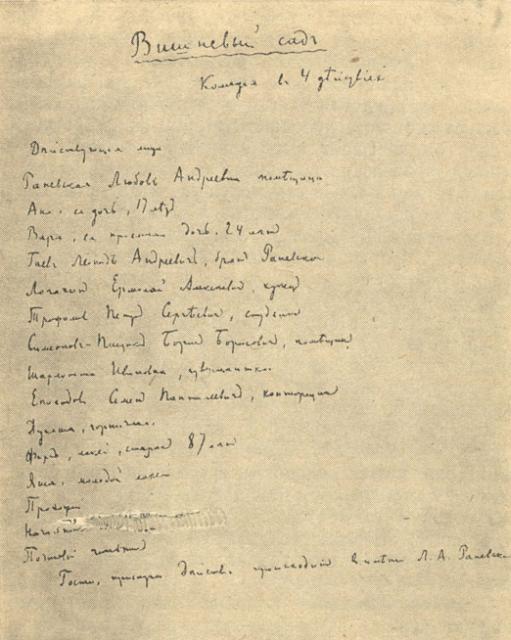 Вишневый садъ
Комедія въ 4 дѣйствіяхъ
Дѣйствующія лица
Раневская Любовь Андреевна помѣщица
Аня, ея дочь, 17 лѣтъ
Варя, ея пріемная дочь, 24 лѣтъ
Гаевъ Леонидъ Андреевичъ, братъ Раневской
Лопахинъ Ермолай Алексѣевич, купецъ
Трофимовъ Петръ Сергѣевич, студентъ
Симеоновъ-Пищикъ Борисъ Борисовичъ, помѣщикъ
Шарлотта Ивановна, гувернантка
Епиходовъ Семенъ Пантелеевичъ, конторщикъ
Дуняша, горничная
Фирсъ, лакей, старикъ 87 лѣтъ
Яша, молодой лакей
Прохожій
Почтовый чиновникъ
Гости, прислуга Дѣйств. происходитъ въ имѣніи Л. А. Раневской